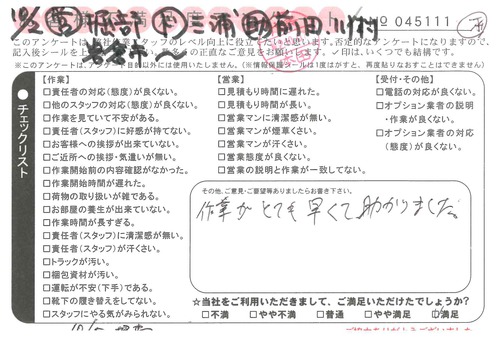 10/2 営 堀部 三浦 助 前田.川村
№ 045111
このアンケートは
スタッフのレベル向上に役立てたいと思います。否定的なアンケートになりますので、
記入後シールを
の正直なご意見をお願いします。✓印は、いくつでも結構です。
※このアンケートは、アンケート目的以外には使用いたしません。(※情報保護シールは1度はがすと、再度貼りなおすことはできません)
チェックリスト
【作業】
□責任者の対応(態度)が良くない。
□他のスタッフの対応(態度)が良くない。
□作業を見ていて不安がある。
□責任者(スタッフ)に好感が持てない。
□お客様への挨拶が出来ていない。
□ご近所への挨拶・気遣いが無い。
□作業開始前の内容確認がなかった。
□作業開始時間が遅れた。
□荷物の取り扱いが雑である。
□お部屋の養生が出来ていない。
□作業時間が長すぎる。
□責任者(スタッフ)に清潔感が無い。
□責任者(スタッフ)が汗くさい。
□トラックが汚い。
□梱包資材が汚い。
□運転が不安(下手)である。
□靴下の履き替えをしてない。
□スタッフにやる気がみられない。
【営業】
□見積もり時間に遅れた。
□見積もり時間が長い。
□営業マンに清潔感が無い。
□営業マンが煙草くさい。
□営業マンが汗くさい。
□営業態度が良くない。
□営業の説明と作業が一致してない。
【受付・その他】
□電話の対応が良くない。
□オプション業者の説明
・作業が良くない。
□オプション業者の対応
(態度)が良くない。
その他、ご意見・ご要望等ありましたらお書き下さい。
作業がとても早くて助かりました。
☆当社をご利用いただきまして、ご満足いただけたでしょうか?
□不満 □やや不満 □普通 □やや満足 □満足